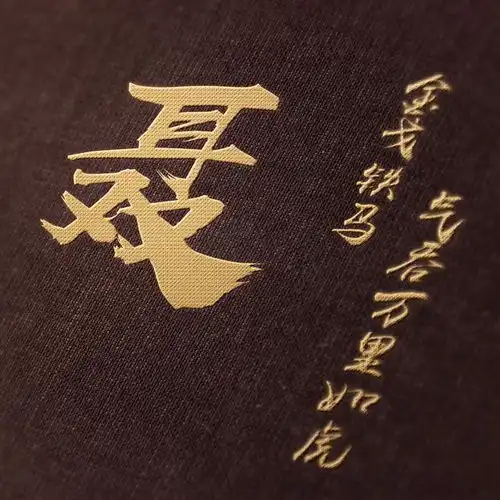 聂
金戈铁马
气吞万里如虎